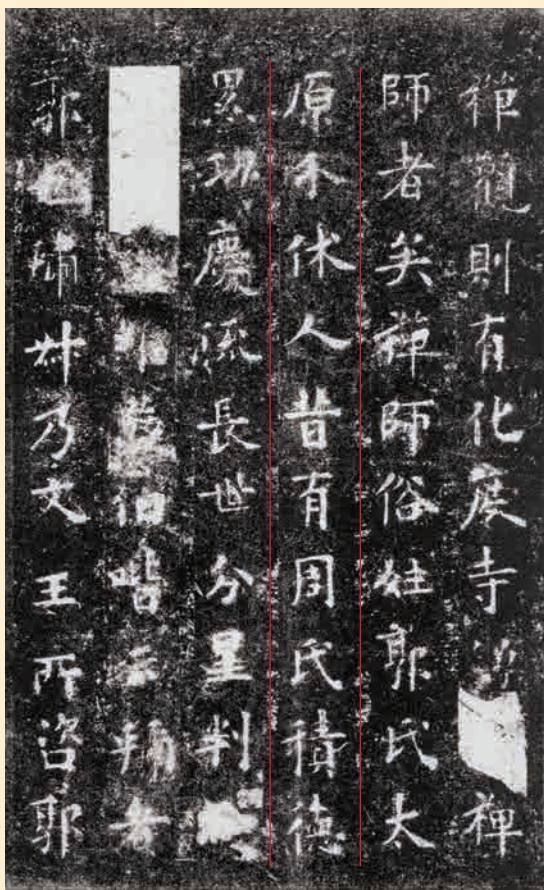 禪觀則有化度寺僧禪
師者矣禪師俗姓郭氏太
原介休人昔有周氏積德
累功慶流長世分星判
蔡伯喈云虢者
郭也虢叔乃文王所咨郭